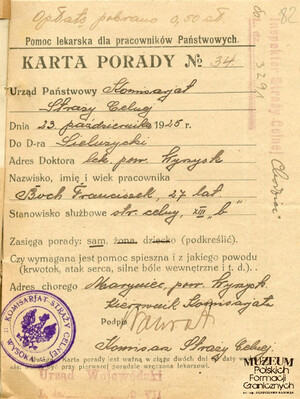 Opłatę pobrano 0,50 zł.
82
Pomoc lekarska dla pracowników Państwowych.
KARTA PORADY № 34
Urząd Państwowy Komisarjat
Straży Celnej
Dnia 23 października 1925 r.
Do D-ra
Adres Doktora lek. pow. Wyrzysk
Nazwisko, imię i wiek pracownika
Franciszek, 27 lat
Stanowisko służbowe str. celny, XIII „b"
Zasięga porady: sam, żona, dziecko (podkreślić).
Czy wymagana jest pomoc spieszna i z jakiego powodu
(krwotok, atak serca, silne bóle wewnętrzne i t. d.).
Adres chorego pow. Wyrzysk
Kierownik Komisarjatu
Podpis
Komisarz Straży Celnej.
KOMISARJAT STRAŻY CELNEJ
Karta porady jest ważną w ciągu dwóch dni od daty
przy pierwszej poradzie wręczana lekarzowi.
Urząd Wojewódzki
MUZEUM
Polskich
Formacji
Granicznych